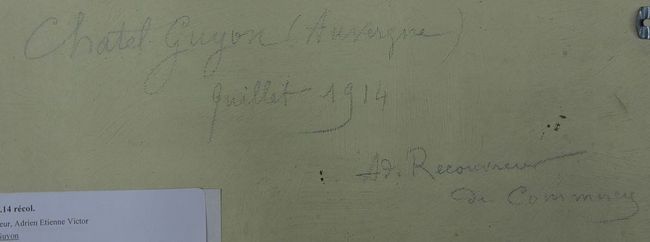 Chatel-Guyon (Auvergne)
Juillet 1914
Ad. Recouvreur
de Commercy
.14 récol.
eur, Adrien Etienne Victor
Guyon